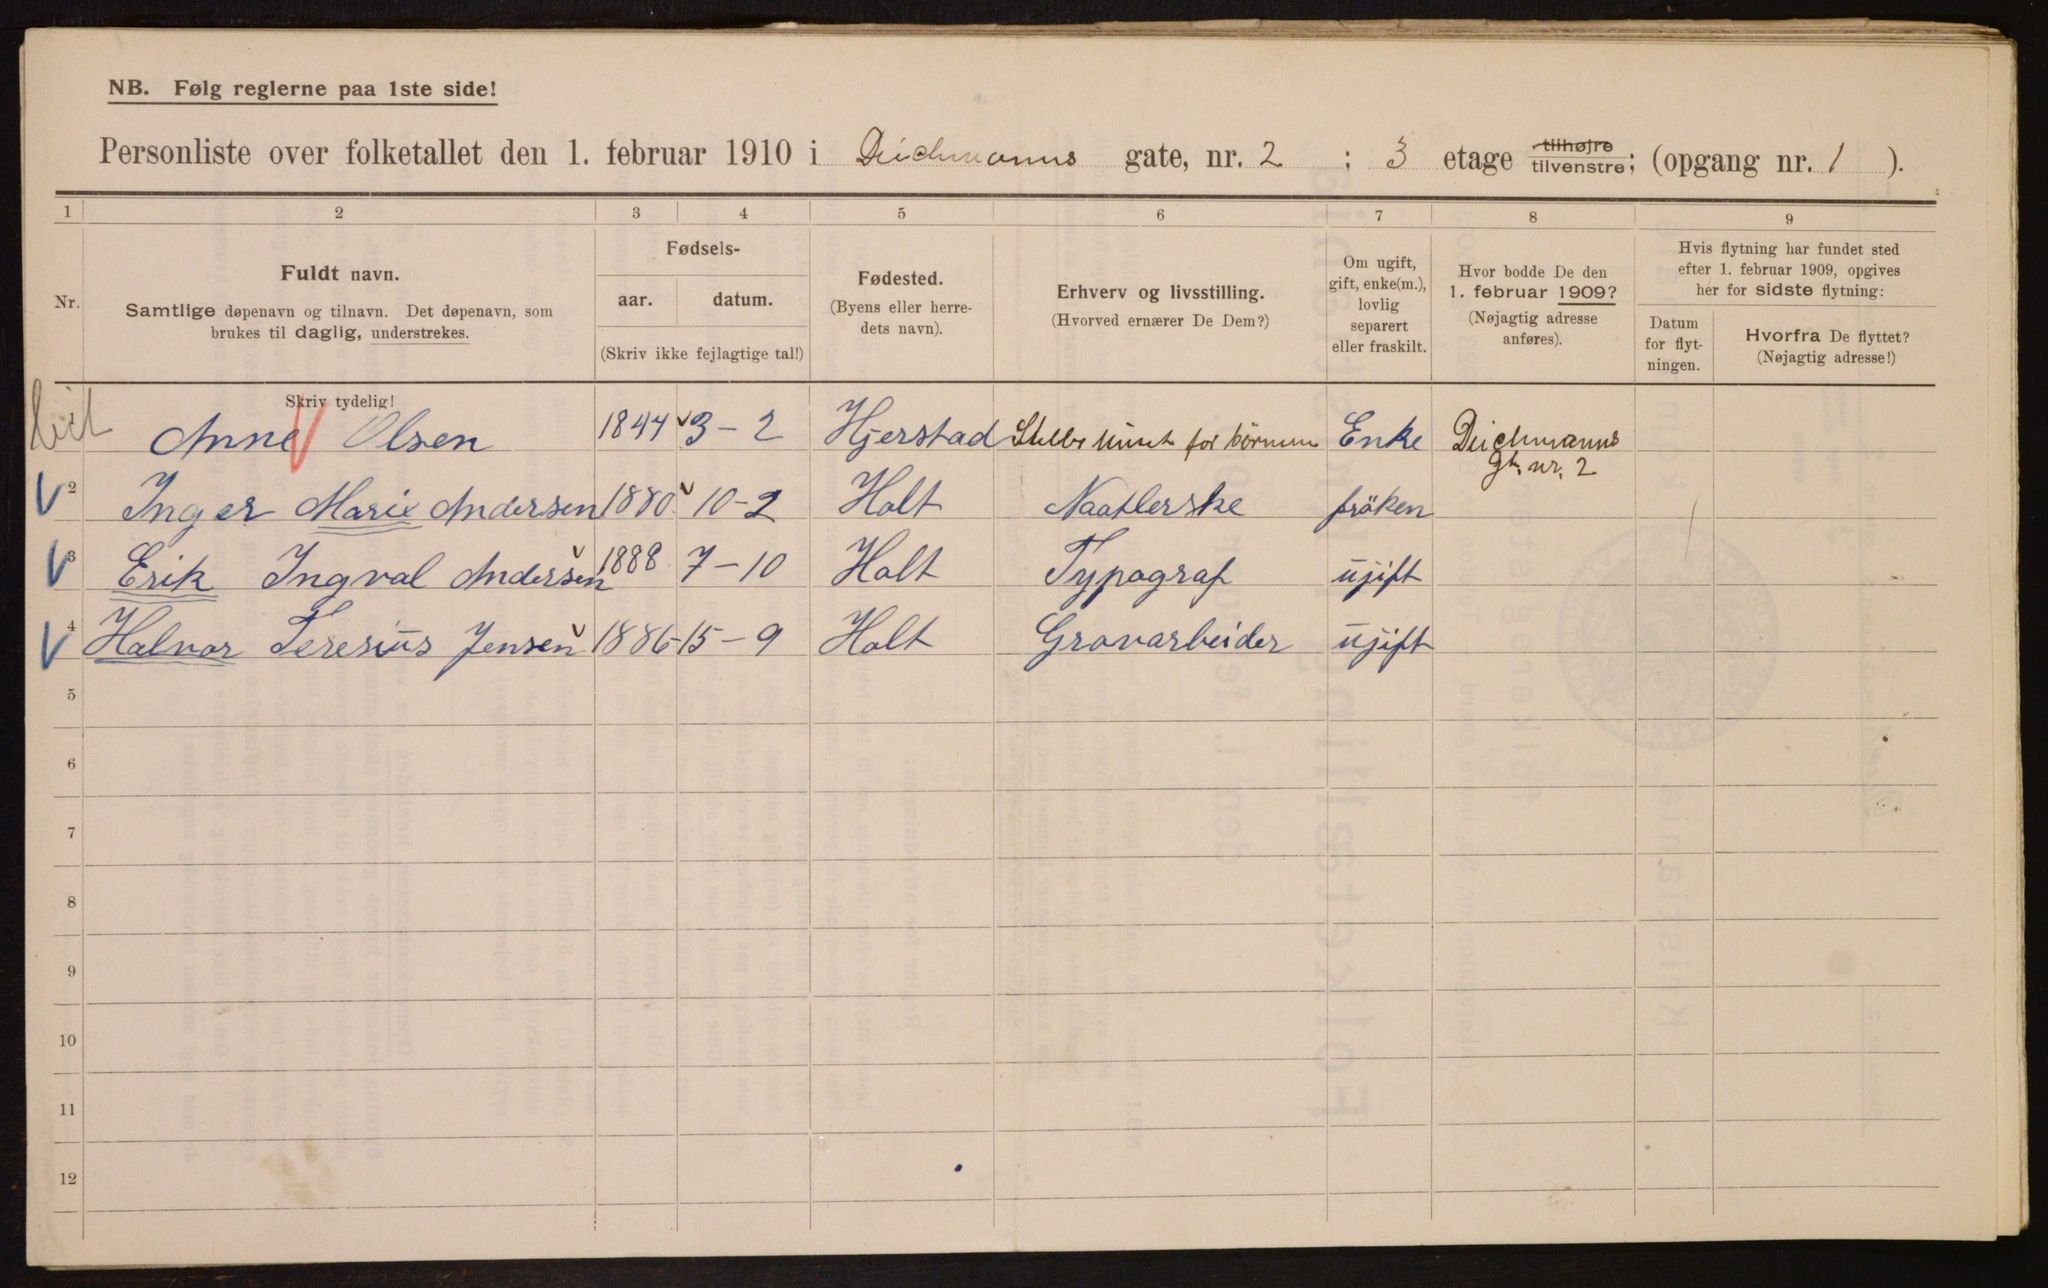 NB. Følg reglerne paa 1ste side!
Personliste over folketallet den 1. februar 1910 i Deichmanns gate, nr. 2 ; 3 etage tilhøjre tilvenstre; (opgang nr. 1 ).
1 2 3 4 5 6 7 8 9
Nr.
Fuldt navn.
Samtlige døpenavn og tilnavn. Det døpenavn, som
brukes til daglig, understrekes.
Skriv tydelig!
Fødsels-
aar. datum.
(Skriv ikke fejlagtige tal!)
Fødested.
(Byens eller herre-
dets navn).
Erhverv og livsstilling.
(Hvorved ernærer De Dem?)
Om ugift,
gift, enke(m.),
lovlig
separert
eller fraskilt.
Hvor bodde De den
1. februar 1909?
(Nøjagtig adresse
anføres).
Hvis flytning har fundet sted
efter 1. februar 1909, opgives
her for sidste flytning:
Datum
for flyt-
ningen.
Hvorfra De flyttet?
(Nøjagtig adresse!)
1 Anne Olsen 1844 3-2 Hjerstad for börnene Enke Deichmanns
gt. nr. 2
2 Inger Marie Andersen 1880 10-2 Holt Naatlerske fröken
3 Erik Ingval Andersen 1888 7-10 Holt Typograf ujift
4 Halvor Teresius Jensen 1886 15-9 Holt Gravarbeider ujift
5
6
7
8
9
10
11
12